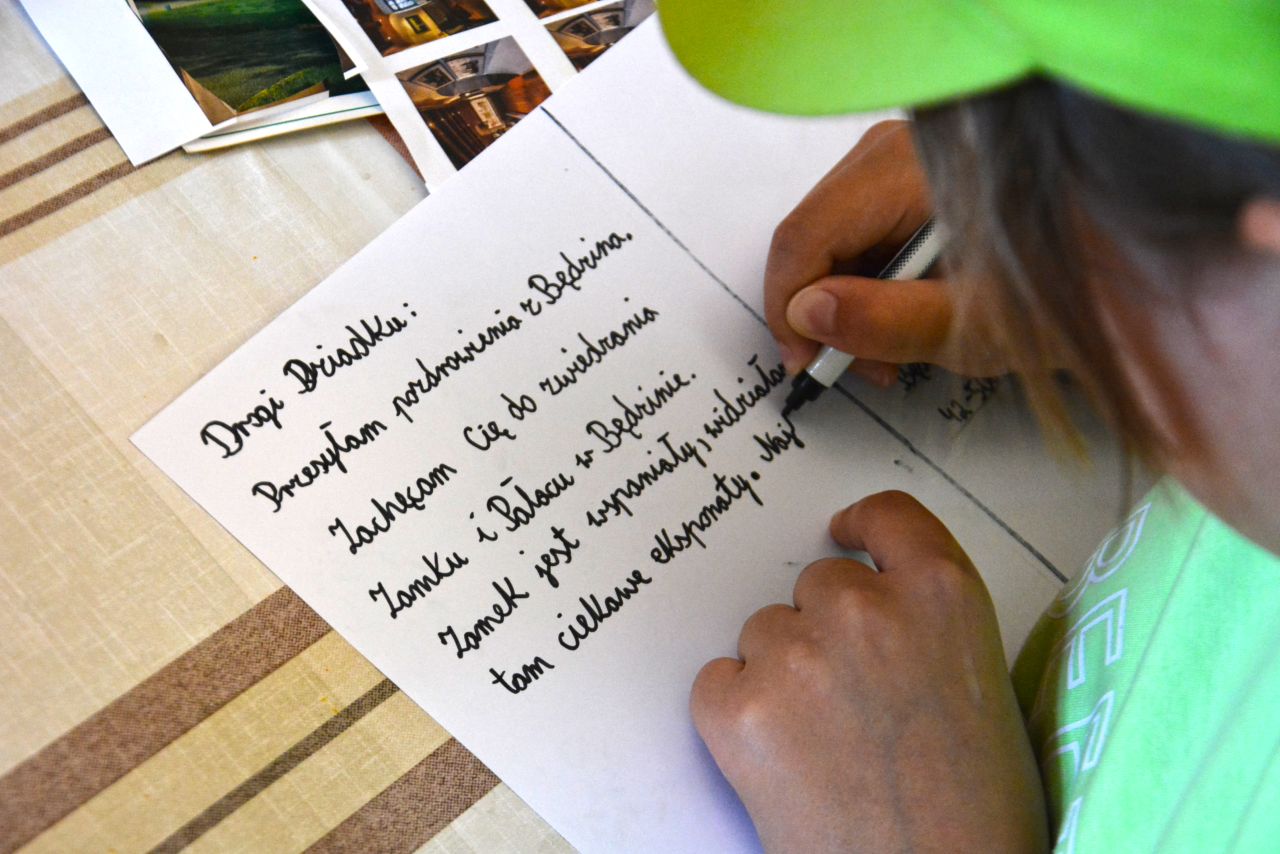 Drogi Dziadku:
Przesyłam pozdrowienia z Będzina.
Zachęcam Cię do zwiedzania
Zamku i Pałacu w Będzinie.
Zamek jest wspaniały, widziałam
tam ciekawe eksponaty. Naj